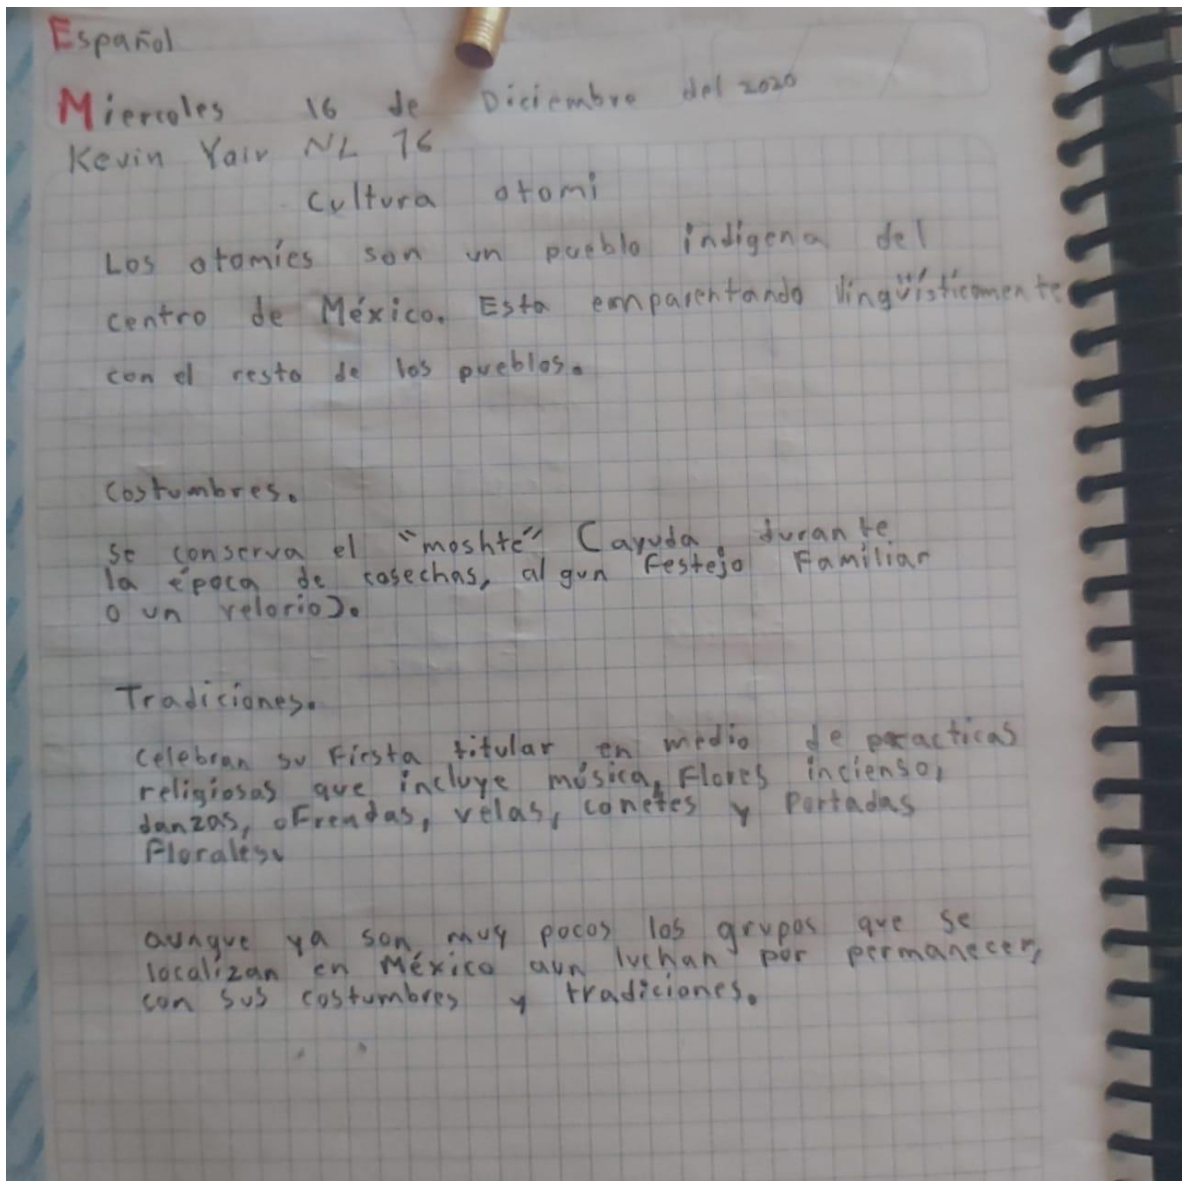 Español
Miercoles 16 de Diciembre del 2020
Kevin Yair NL 16
Cultura otomi
Los otomíes son un pueblo indígena del
centro de México. Esta emparentando lingüísticamente
con el resto de los pueblos.
Costumbres.
Se conserva el "moshte" (ayuda, durante
la época de cosechas, algun festejo Familiar
o un velorio).
Tradiciones.
Celebran su Fiesta titular en medio de practicas
religiosas que incluye música, Flores incienso,
danzas, oFrendas, velas, conetes y Portadas
Florales.
aunque ya son muy pocos los grupos que se
localizan en México aun luchan por permanecer,
con sus costumbres y tradiciones.